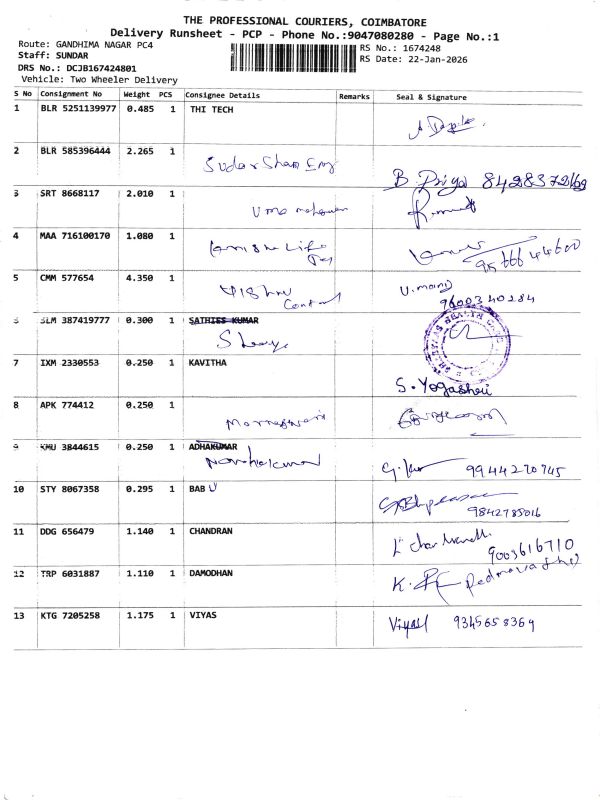 THE PROFESSIONAL COURIERS, COIMBATORE
Delivery Runsheet - PCP - Phone No.:9047080280 - Page No.:1
Route: GANDHIMA NAGAR PC4
Staff: SUNDAR
DRS No.: DCJB167424801
Vehicle: Two Wheeler Delivery
RS No.: 1674248
RS Date: 22-Jan-2026
S No Consignment No Weight PCS Consignee Details Remarks Seal & Signature
1 BLR 5251139977 0.485 1 THI TECH
2 BLR 585396444 2.265 1 B. Priya 8428372169
3 SRT 8668117 2.010 1
4 MAA 716100170 1.080 1
5 CMM 577654 4.350 1 Vishnu U. mani 9600340284
6 SLM 387419777 0.300 1 SATHIES KUMAR
7 IXM 2330553 0.250 1 KAVITHA S. Yogashri
8 APK 774412 0.250 1
9 KMU 3844615 0.250 1 ADHAKUMAR 9944270745
10 STY 8067358 0.295 1 BAB U 9842785016
11 DDG 656479 1.140 1 CHANDRAN 9003616710
12 TRP 6031887 1.110 1 DAMODHAN K.
13 KTG 7205258 1.175 1 VIYAS Viyas 9345658369